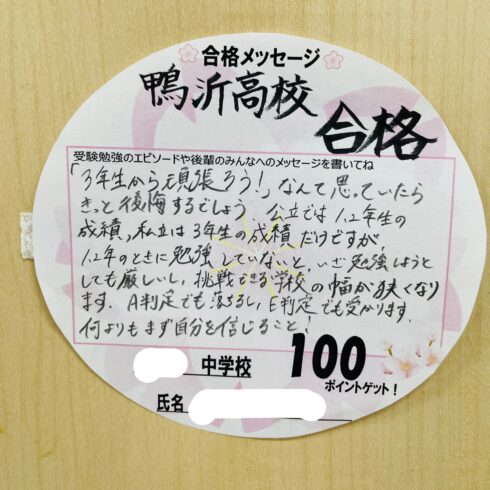 合格メッセージ
鴨沂高校
合格
受験勉強のエピソードや後輩のみんなへのメッセージを書いてね
「3年生から頑張ろう!」なんて思っていたら
きっと後悔するでしょう 公立では1.2年生の
成績,私立は3年生の成績だけですが,
1.2年のときに勉強していないと、いざ勉強しようと
しても厳しいし,挑戦できる学校の幅が狭くなり
ます. A判定でも落ちるし,E判定でも受かります.
何よりもまず自分を信じること!
中学校
100
ポイントゲット!
氏名